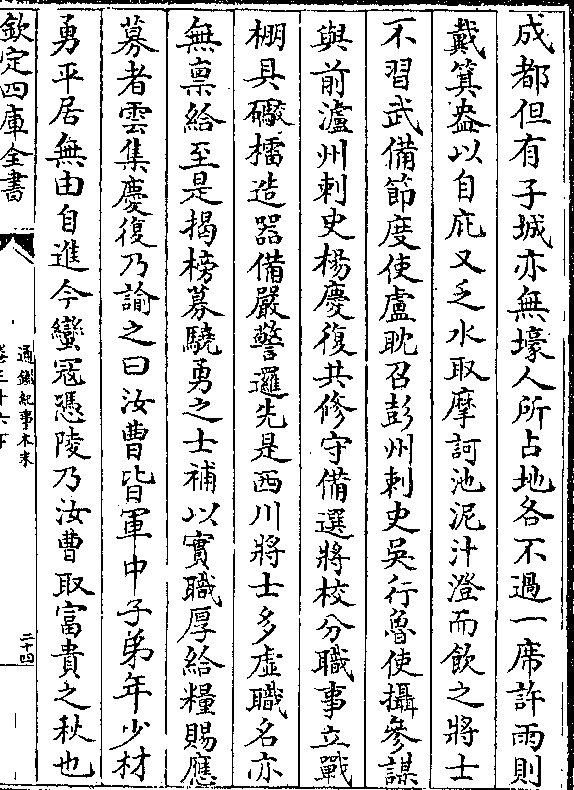 成都但有子城亦無壕人所占地各不過一席許雨則
戴箕盎以自庇又乏水取摩訶池泥汁澄而飲之將士
不習武備節度使盧耽召彭州刺史吳行魯使攝參謀
與前瀘州刺史楊慶復共修守備選將校分職事立戰
棚具礮檑造器備嚴警邏先是西川將士多虛職名亦
無稟給至是揭榜募驍勇之士補以實職厚給糧賜應
募者雲集慶復乃諭之曰汝曹皆軍中子弟年少材
勇平居無由自進今蠻寇憑陵乃汝曹取富貴之秋也
欽定四庫全書
通鑑紀事本末
卷三十六下
二十四